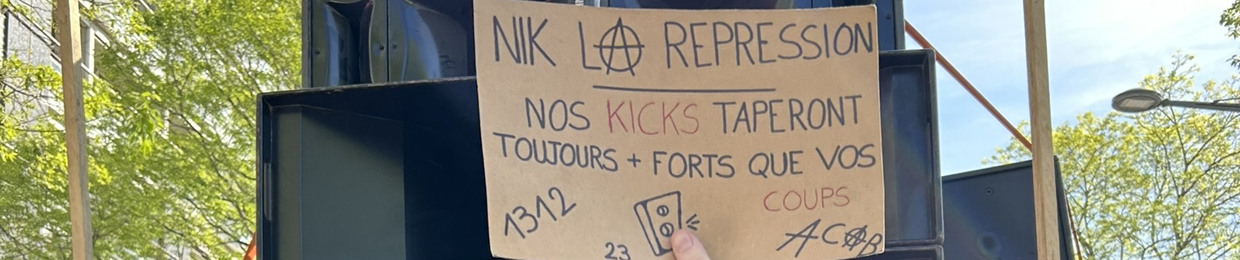 NIK LA REPRESSION
NOS KICKS TAPERONT
TOUJOURS + FORTS QUE VOS
COUPS
1312
23
ACAB